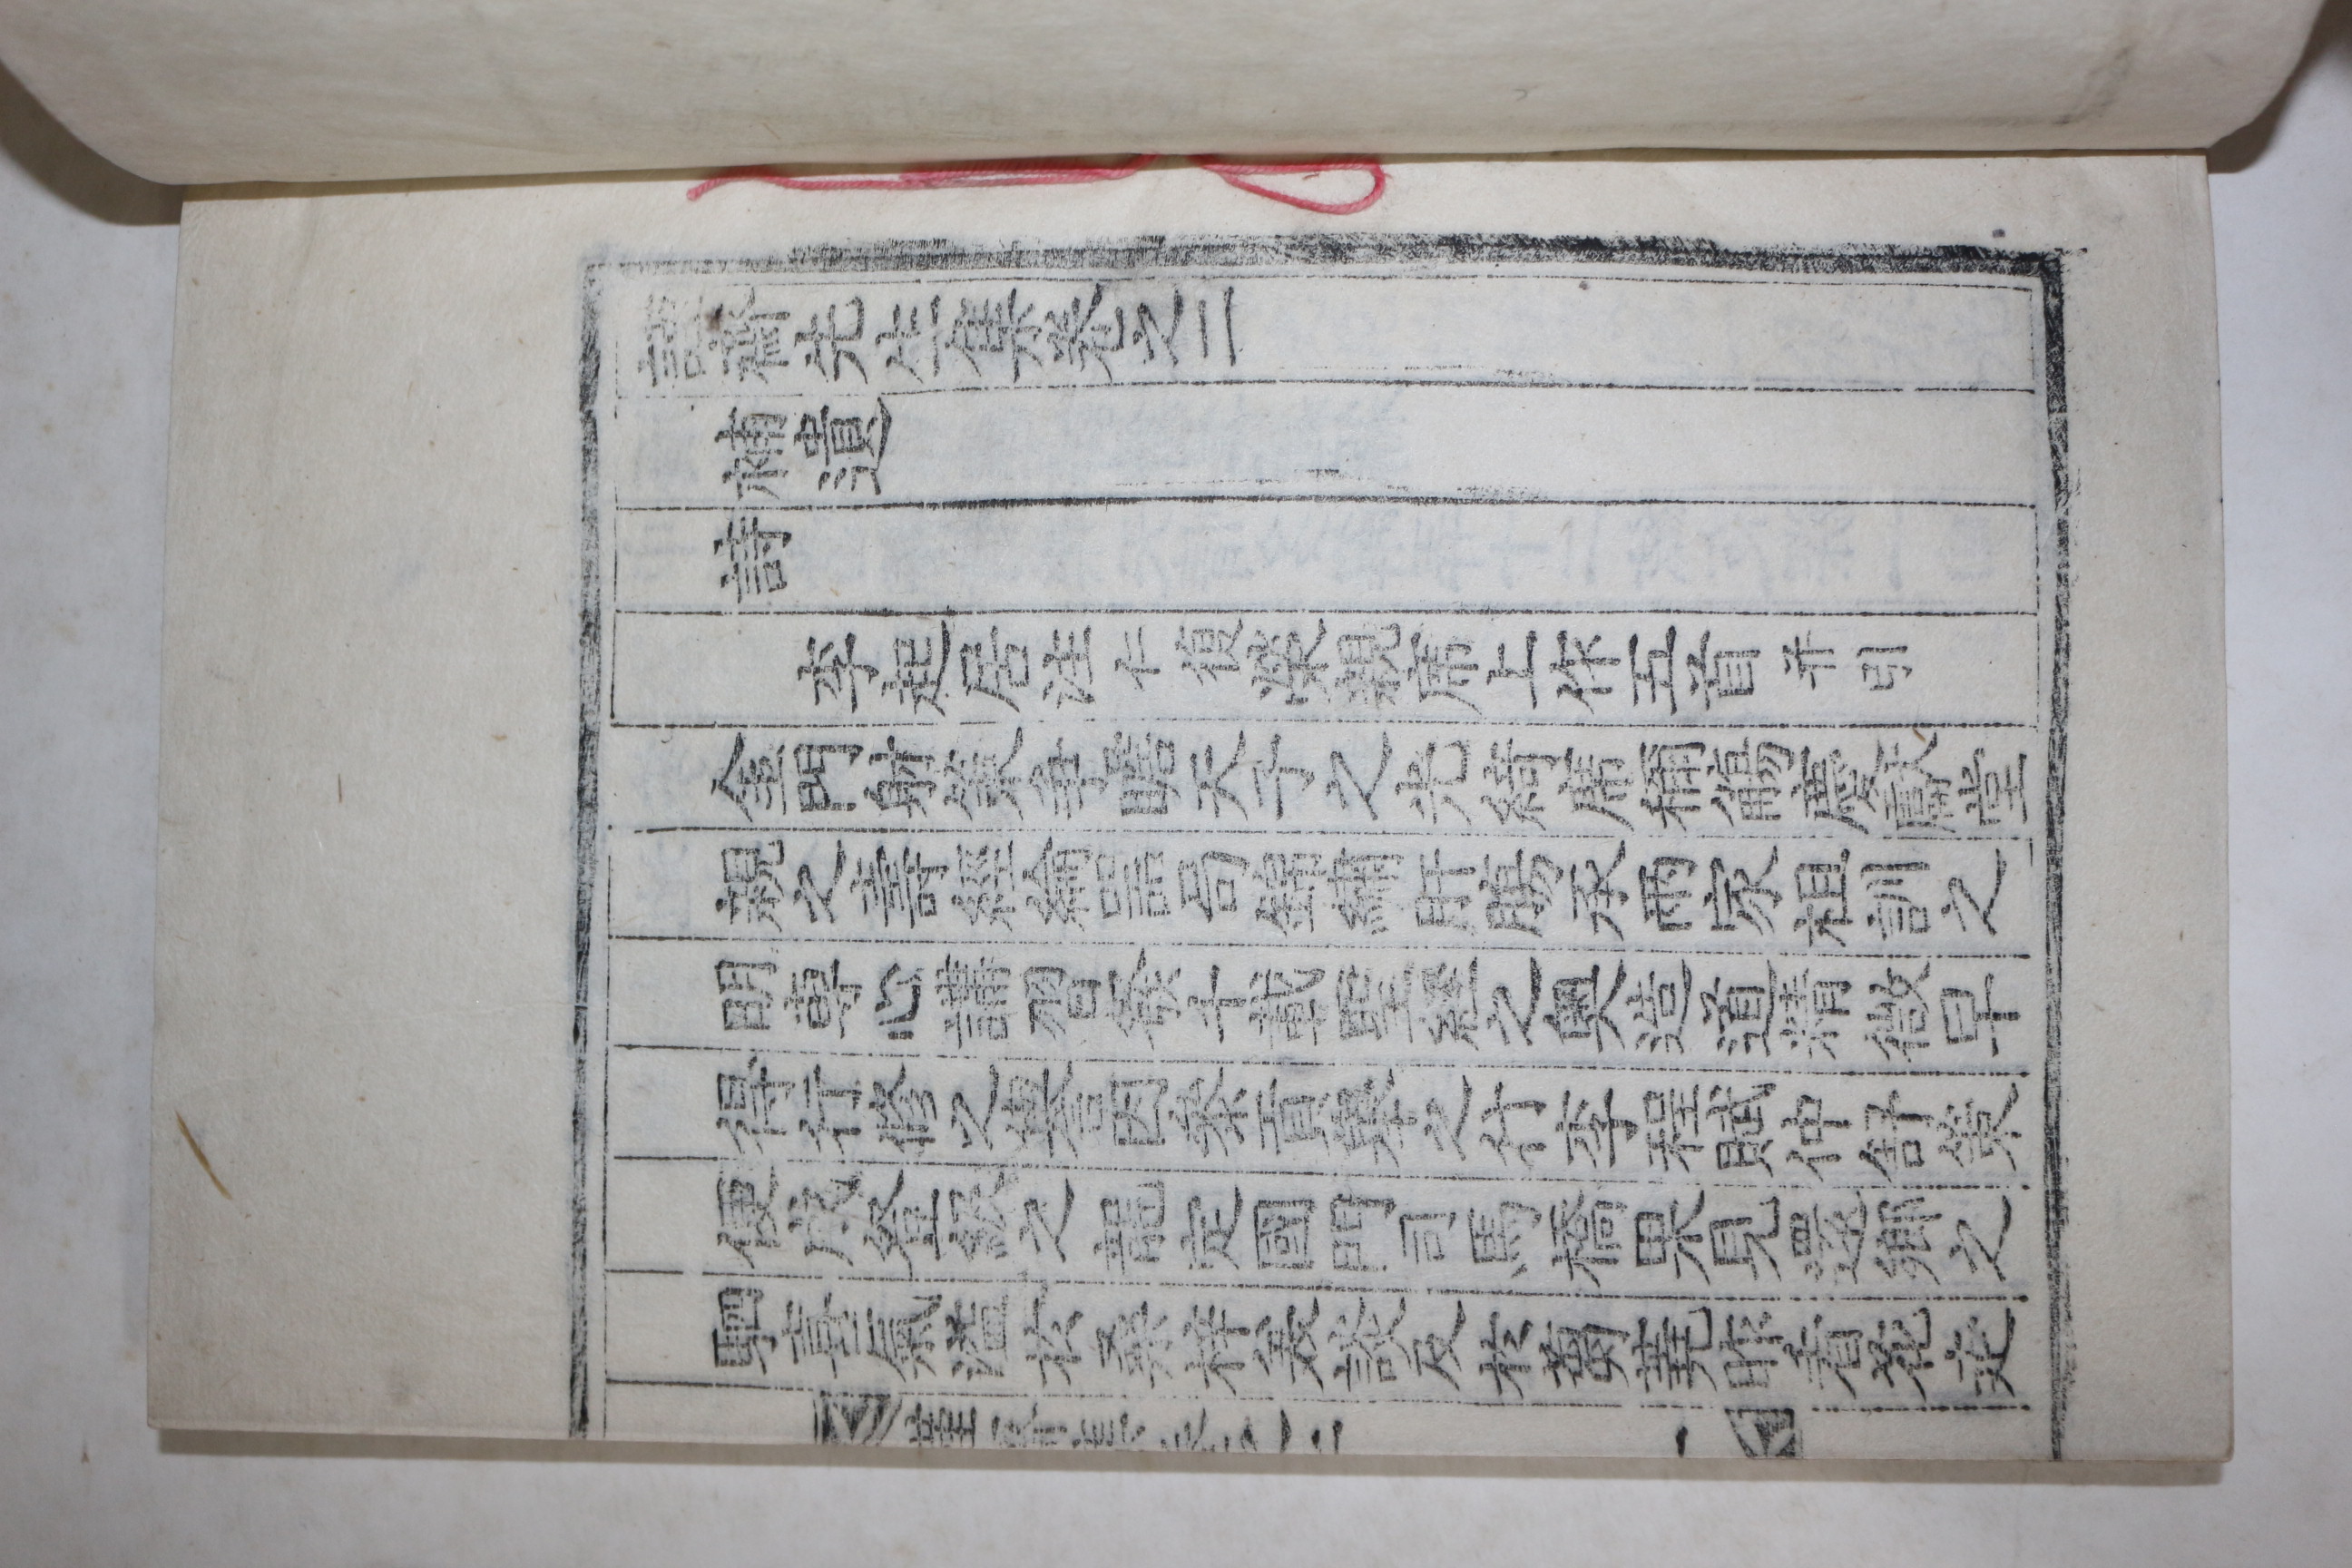 謹齋先生集卷之二
補遺
詩
李起居注仁復榮親席上作五首并引
金門射策爭瞻天子之光綺席稱觴慶獻堂
親之壽經綸器局錦繡肝膓承兩家祖訓之
明專心講習發千載聖經之奧造道精微早
得行修之譽因參貢擧之行李程賦仲舒策
便成登級之龍定國門司馬橋果見還鄉之
駟喜氣溢於桑梓美談及於蒭蕘昨看花走